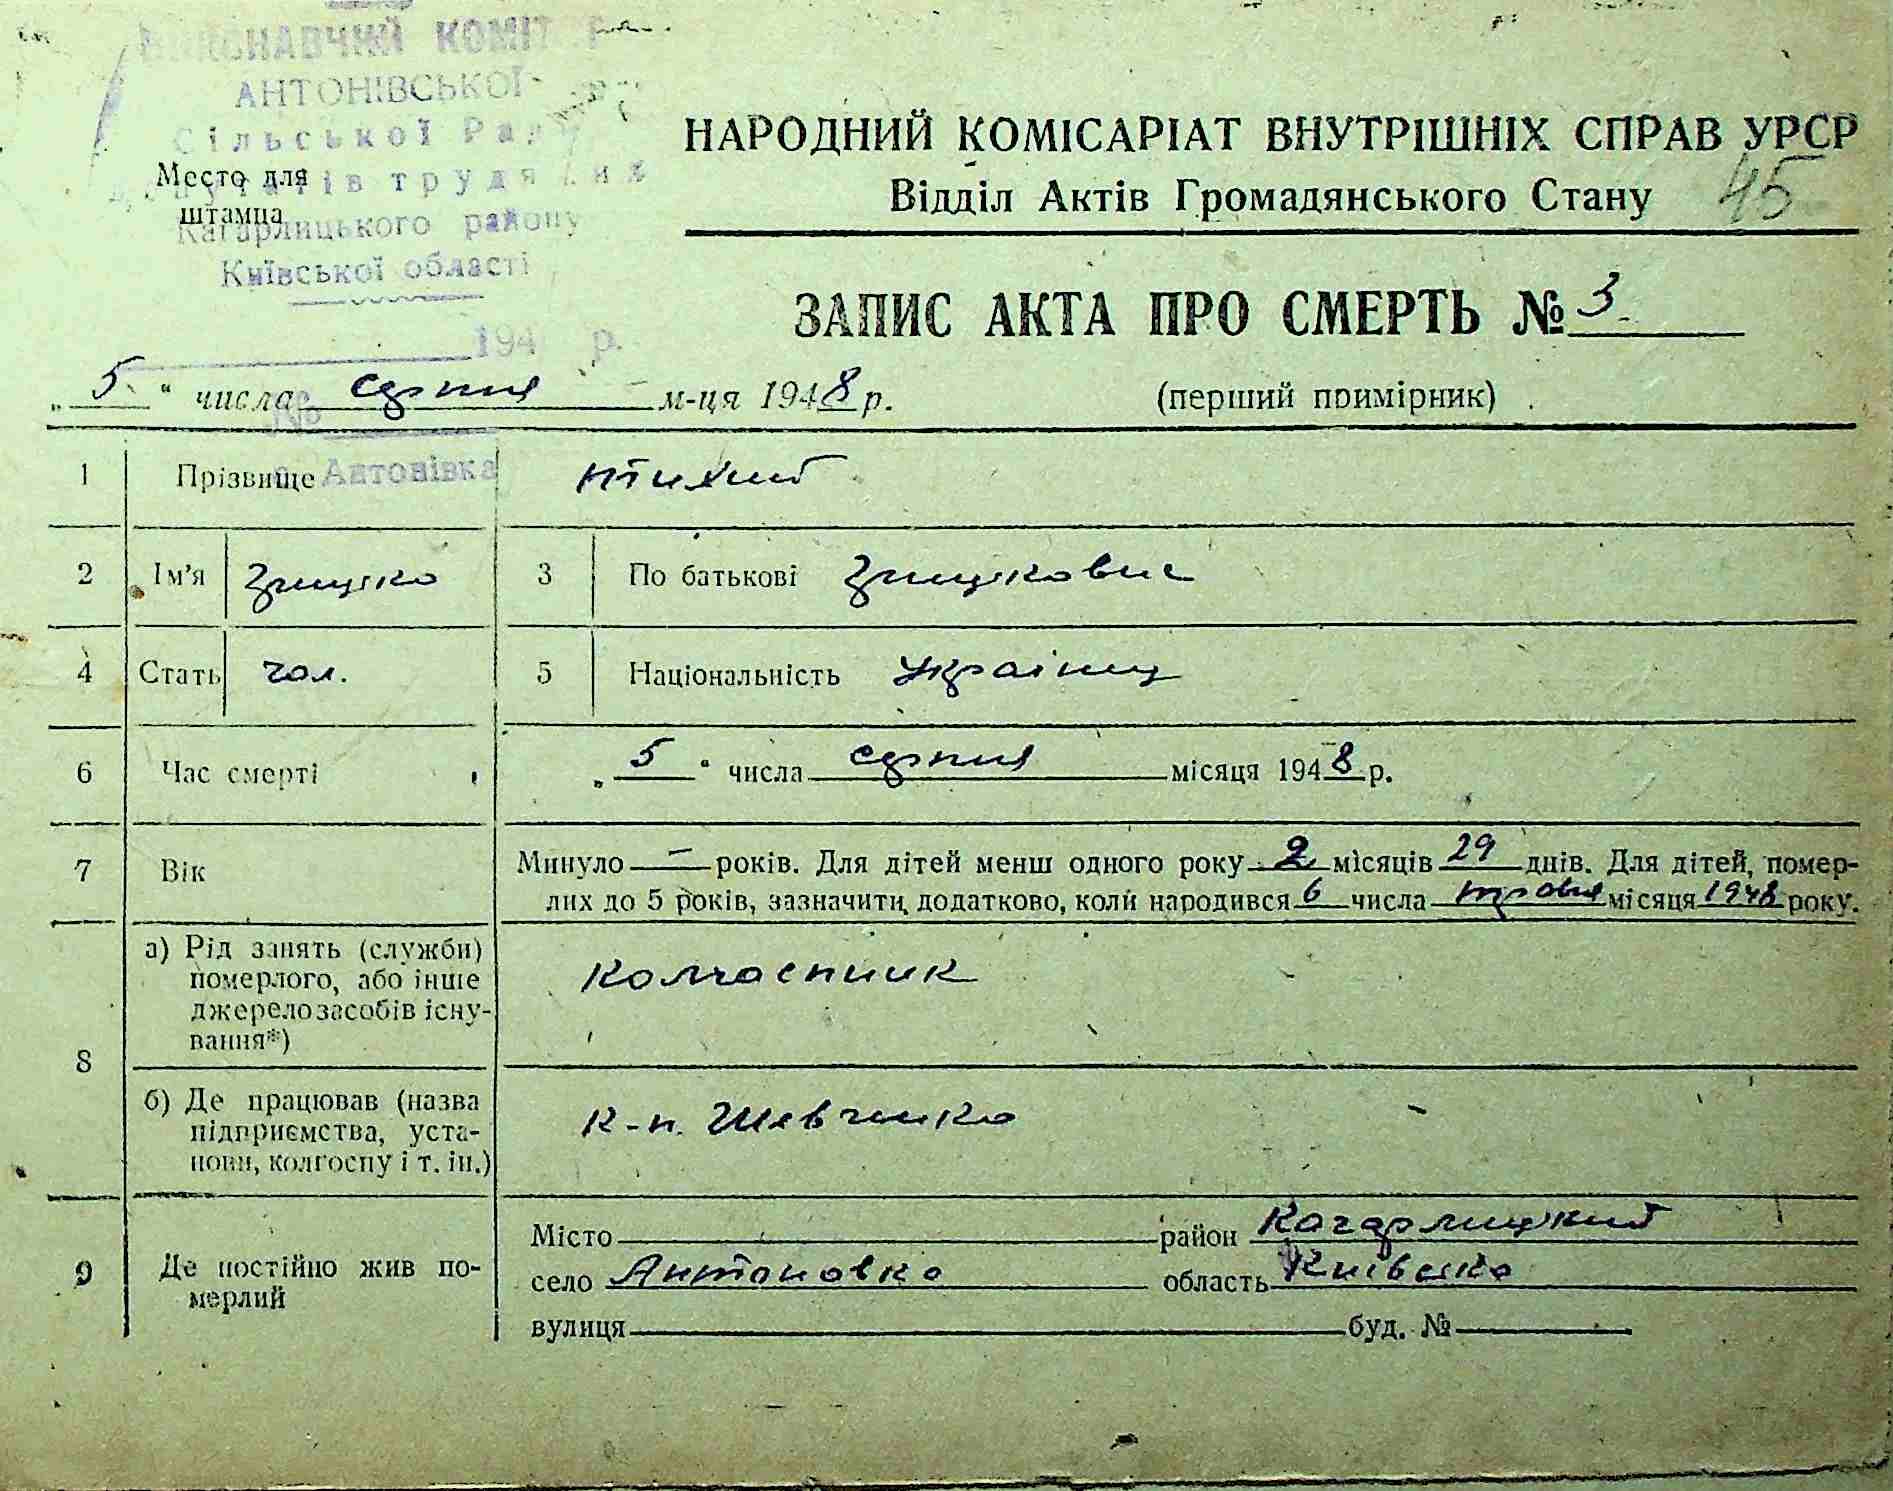 ВИКОНАВЧИЙ КОМІТЕТ
АНТОНІВСЬКОЇ
Сільської Ради
депутатів трудящих
Кагарлицького району
Київської області
194 р.
№
с. Антонівка
Место для
штампа
НАРОДНИЙ КОМІСАРІАТ ВНУТРІШНІХ СПРАВ УРСР
Відділ Актів Громадянського Стану
45
ЗАПИС АКТА ПРО СМЕРТЬ № 3
„5“ числа серпня м-ця 1948 р.
(перший примірник)
1 Прізвище
2 Ім'я Грицько 3 По батькові Грицькович
4 Стать чол. 5 Національність українец
6 Час смерті „5“ числа серпня місяця 1948 р.
7 Вік Минуло — років. Для дітей менш одного року 2 місяців 29 днів. Для дітей, помер-
лих до 5 років, зазначити, додатково, коли народився 6 числа травня місяця 1948 року.
8 а) Рід занять (служби)
померлого, або інше
джерело засобів існу-
вання*)
колгоспник
б) Де працював (назва
підприємства, уста-
нови, колгоспу і т. ін.)
к-п. Шевченка
9 Де постійно жив по-
мерлий
Місто район Кагарлицький
село Антоновка область Київська
вулиця буд. №